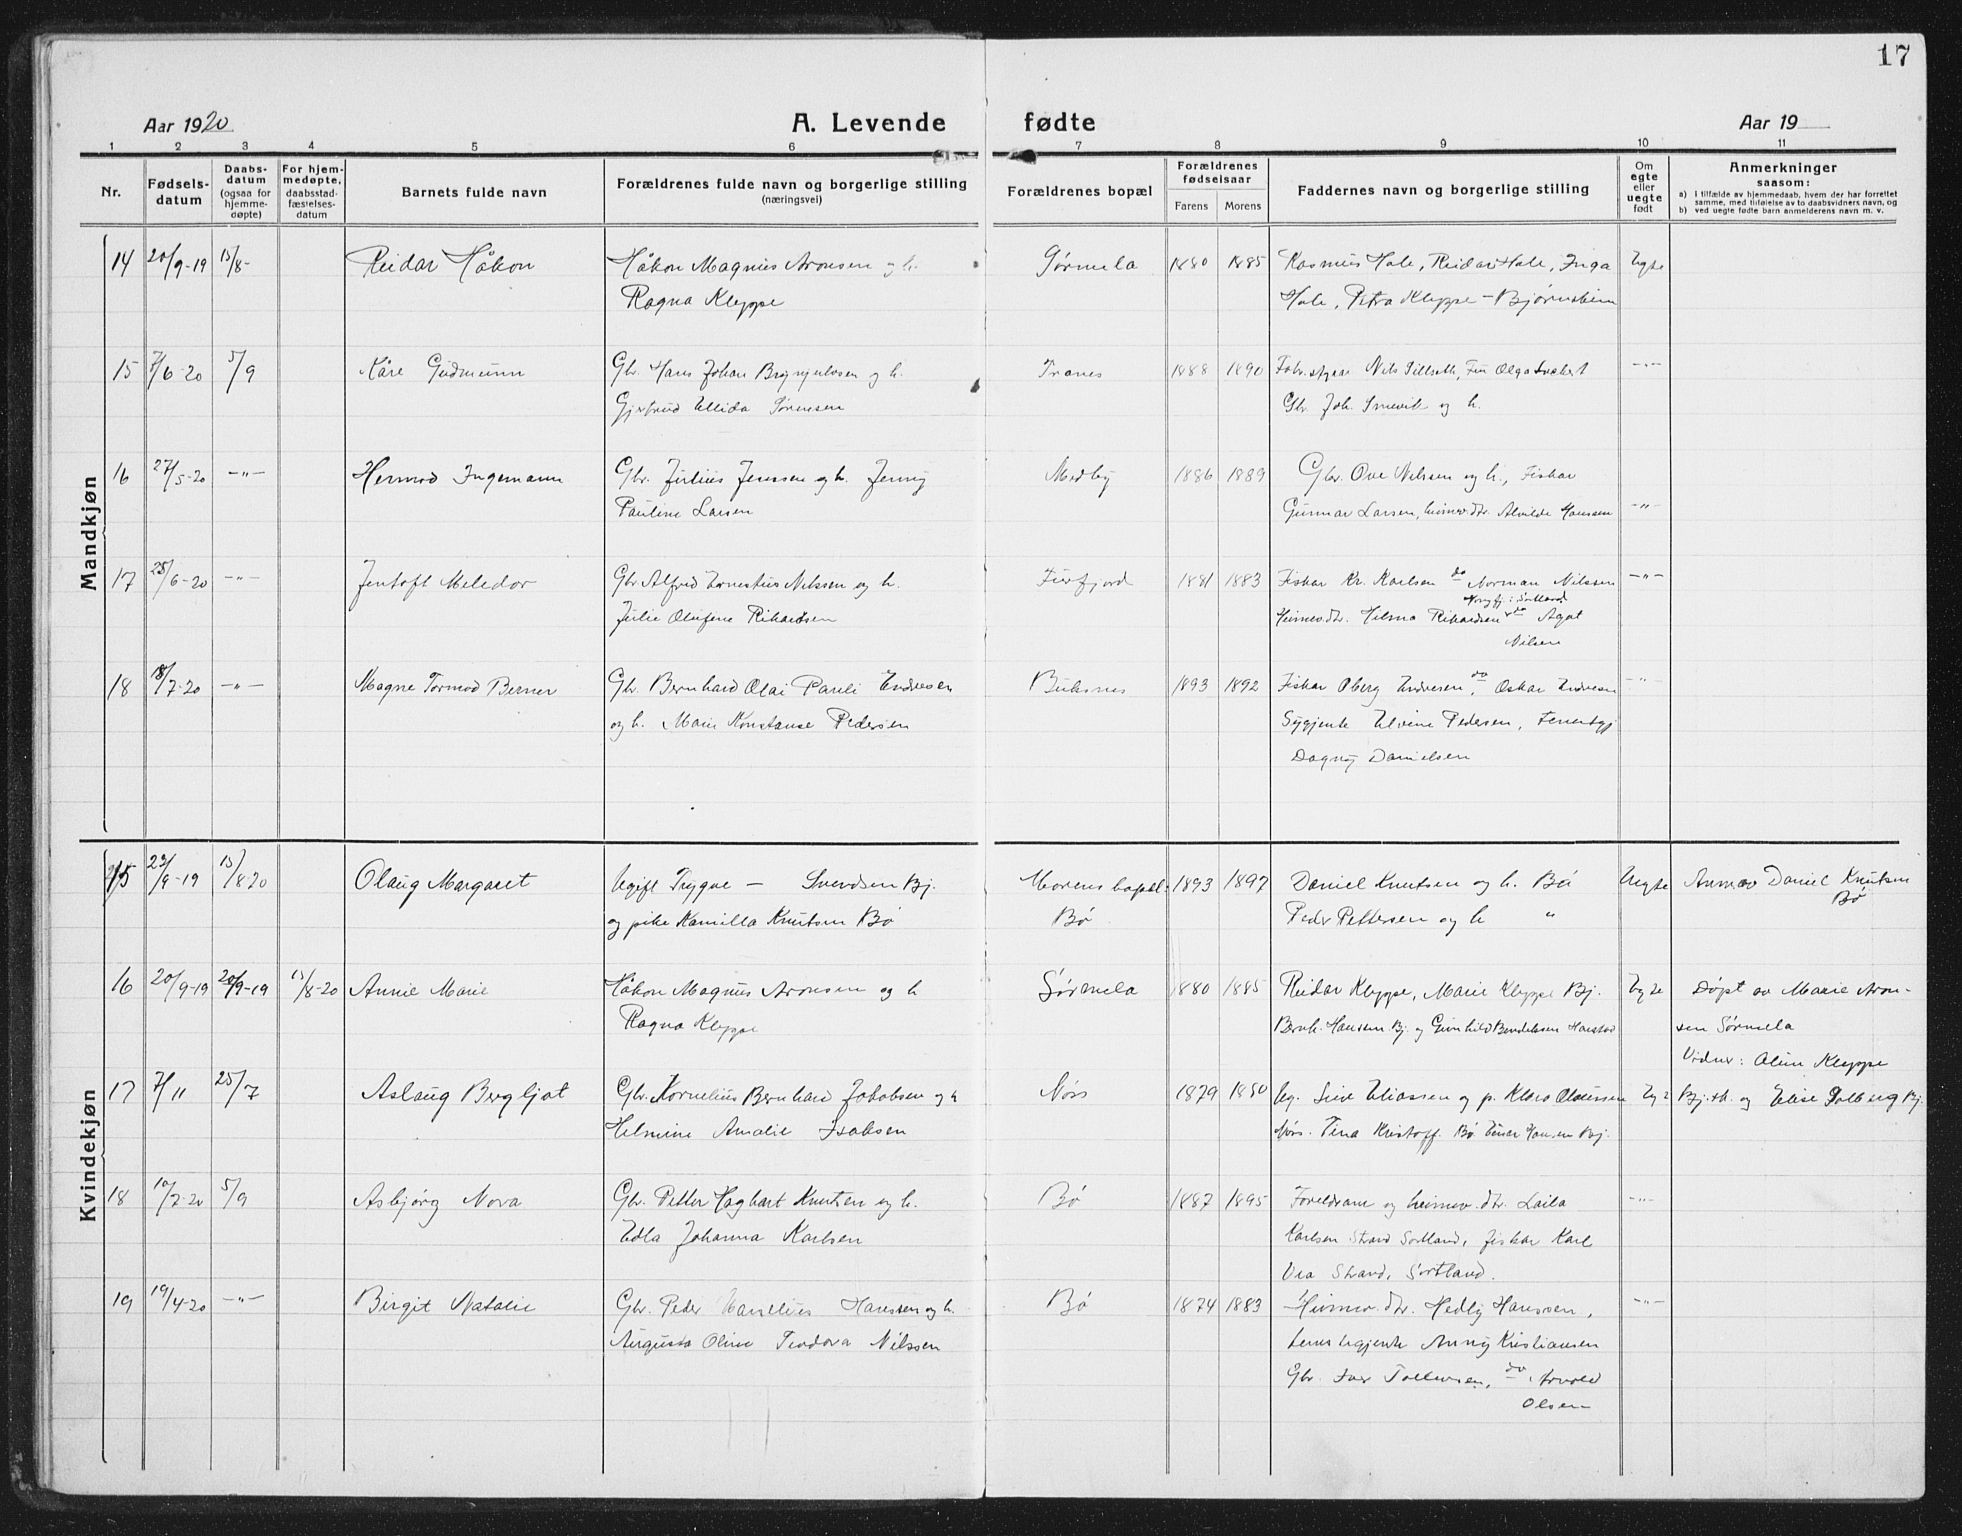 17
Aar 1920
A. Levende fødte
Aar 19
1 2 3 4 5 6 7 8 9 10 11
Nr.
Fødselsdatum
Daabsdatum (ogsaa for hjemmedøpte)
For hjemmedøpte, daabsstadfæstelsesdatum
Barnets fulde navn
Forældrenes fulde navn og borgerlige stilling (næringsvei)
Forældrenes bopæl
Forældrenes fødselsaar
Farens Morens
Faddernes navn og borgerlige stilling
Om egte eller uegte født
Anmerkninger
saasom:
a) i tilfælde av hjemmedaab, hvem der har forrettet samme, med tilføielse av to daabsvidners navn, og
b) ved uegte fødte barn anmelderens navn m. v.
Mandkjøn
14 20/9-19 15/8- Reidar Håkon Håkon Magnus Aronsen og h. Sørmela 1880 1885 Rasmus Hole, Reidar Hole, Inga Egte
Ragna Kleppe Hole, Petra Kleppe - Bjørnskinn
15 7/6-20 5/9 Kåre Gudmunn Gbr. Hans Johan Brynjulvsen og h. Tranes 1888 1890 Nils Fru Olga -"-
Gjertrud Ellida Sørensen Gbr. Joh. og h.
16 27/5-20 -"- Hermod Ingemann Gbr. Julius Jenssen og h. Jenny Medby 1886 1889 Gbr. Ove Nilssen og h., Fiskar
Pauline Larsen Gunnar Larsen, heimev. dtr. Alvilde Hanssen -"-
17 25/6-20 -"- Jentoft Meledor Gbr. Alfred Ernestius Nilssen og h. Finfjord 1881 1883 Fiskar Kr. Karlsen do Norman Nilssen -"-
Julie Olufine Rikardsen Heimev. dtr. Helma Rikardsen do Agot
Nilsen
18 18/7-20 -"- Magne Tormod Berner Gbr. Bernhard Olai Pauli Endresen Buksnes 1893 1892 Fiskar Oberg Endresen do. Oskar Endresen -"-
og h. Marie Konstanse Pedersen Sygjente Elvine Pedersen,
Dagny Danielsen
Kvindekjøn
15 23/9-19 15/8-20 Olaug Margaret Ugift Trygve — Svendsen Bj. Morens bopæl: 1893 1897 Daniel Knutsen og h. Bø Uegte Anmav Daniel Knutsen
og pike Kamilla Knutsen Bø Bø Peder Pettersen og h " Bø
16 20/9-19 20/9-19 15/8-20 Annie Marie Håkon Magnus Aronsen og h Sørmela 1880 1885 Reidar Kleppe, Marie Kleppe Bj. Egte Døpt av Marie Aron-
Ragna Kleppe Bernh. Hanssen Bj. og Gunhild Bendiksen Harstad sen Sørmela
Vidner: Oline Kleppe
17 7/11 25/7 Aslaug Bergljot Gbr. Kornelius Bernhard Jakobsen og h Nøss 1879 1880 Eliassen og p. Klara Olaussen Bj. og Elise Solberg Bj.
Helmine Amalie Isaksen Nøss. Tina Kristoff. Bø. Einar Hansen Bj.
18 10/7-20 5/9 Asbjørg Nova Gbr. Petter Hagbart Knutsen og h. Bø 1887 1895 Foreldrane og heimev. dtr. Laila -"-
Edla Johanna Karlsen Karlsen Strand Sortland, fiskar Karl
Vea Strand, Sortland.
19 19/4-20 -"- Birgit Natalie Gbr. Peder Hanssen og h. Bø 1874 1883 Heimev. dtr. Hedly Hanssen, -"-
Augusta Oline Teodora Nilssen Anny Kristiansen
Gbr. Tollevsen, do. Arnold
Olsen